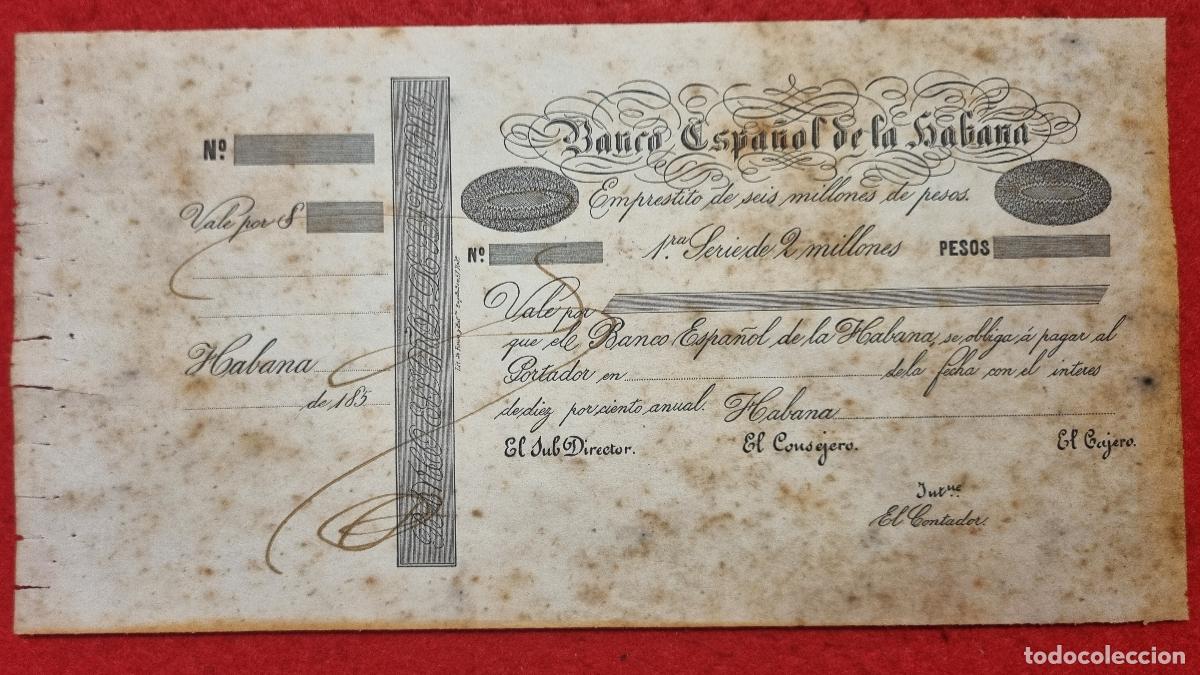 Nº
Vale por $
Habana
de 185
BANCO ESPAÑOL DE LA HABANA
Banco Español de la Habana
Emprestito de seis millones de pesos.
Nº 1.ra Serie de 2 millones PESOS
Vale por
que el Banco Español de la Habana, se obliga á pagar al
Portador en de la fecha con el interes
de diez por ciento anual. Habana
El Sub Director. El Consejero. El Cajero.
El Contador.
todocoleccion